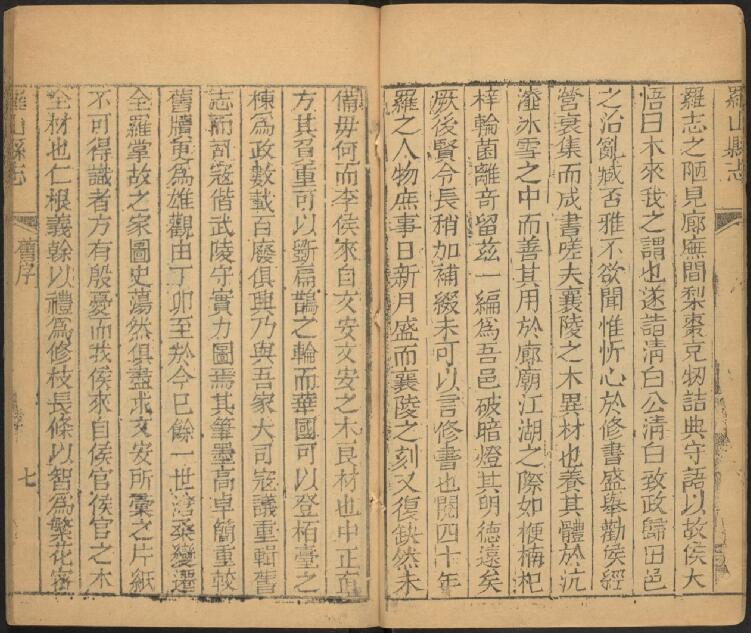 羅山縣志
羅志之陋見廊廡間梨棗充牣詰典守語以故侯大
悟曰木來我之謂也遂詣清白公清白致政歸田邑
之治亂臧否雅不欲聞惟忻心於修書盛舉勸侯經
營裒集而成書嗟夫襄陵之木異材也養其體於沆
瀣冰雪之中而善其用於廊廟江湖之際如楩楠杞
梓輪菌離奇留茲一編為吾邑破暗燈其明德遠矣
厥後賢令長稍加補綴未可以言修書也閱四十年
羅之人物庶事日新月盛而襄陵之刻又復缺然未
備毋何而李侯來自文安文安之木良材也中正而
方其負重可以斲扁鵲之輪而華國可以登栢臺之
棟為政數載百廢俱興乃與吾家大司寇議重輯舊
志而司寇偕武陵守實力圖焉其筆墨高卓簡重較
舊牘更為雄觀由丁卯至於今已餘一世滄桑變遷
全羅掌故之家圖史蕩然俱盡求文安所彙之片紙
不可得識者方有殷憂而我侯來自侯官侯官之木
全材也仁根義榦以禮為修枝長條以智為繁花密
羅山縣志
舊序
七